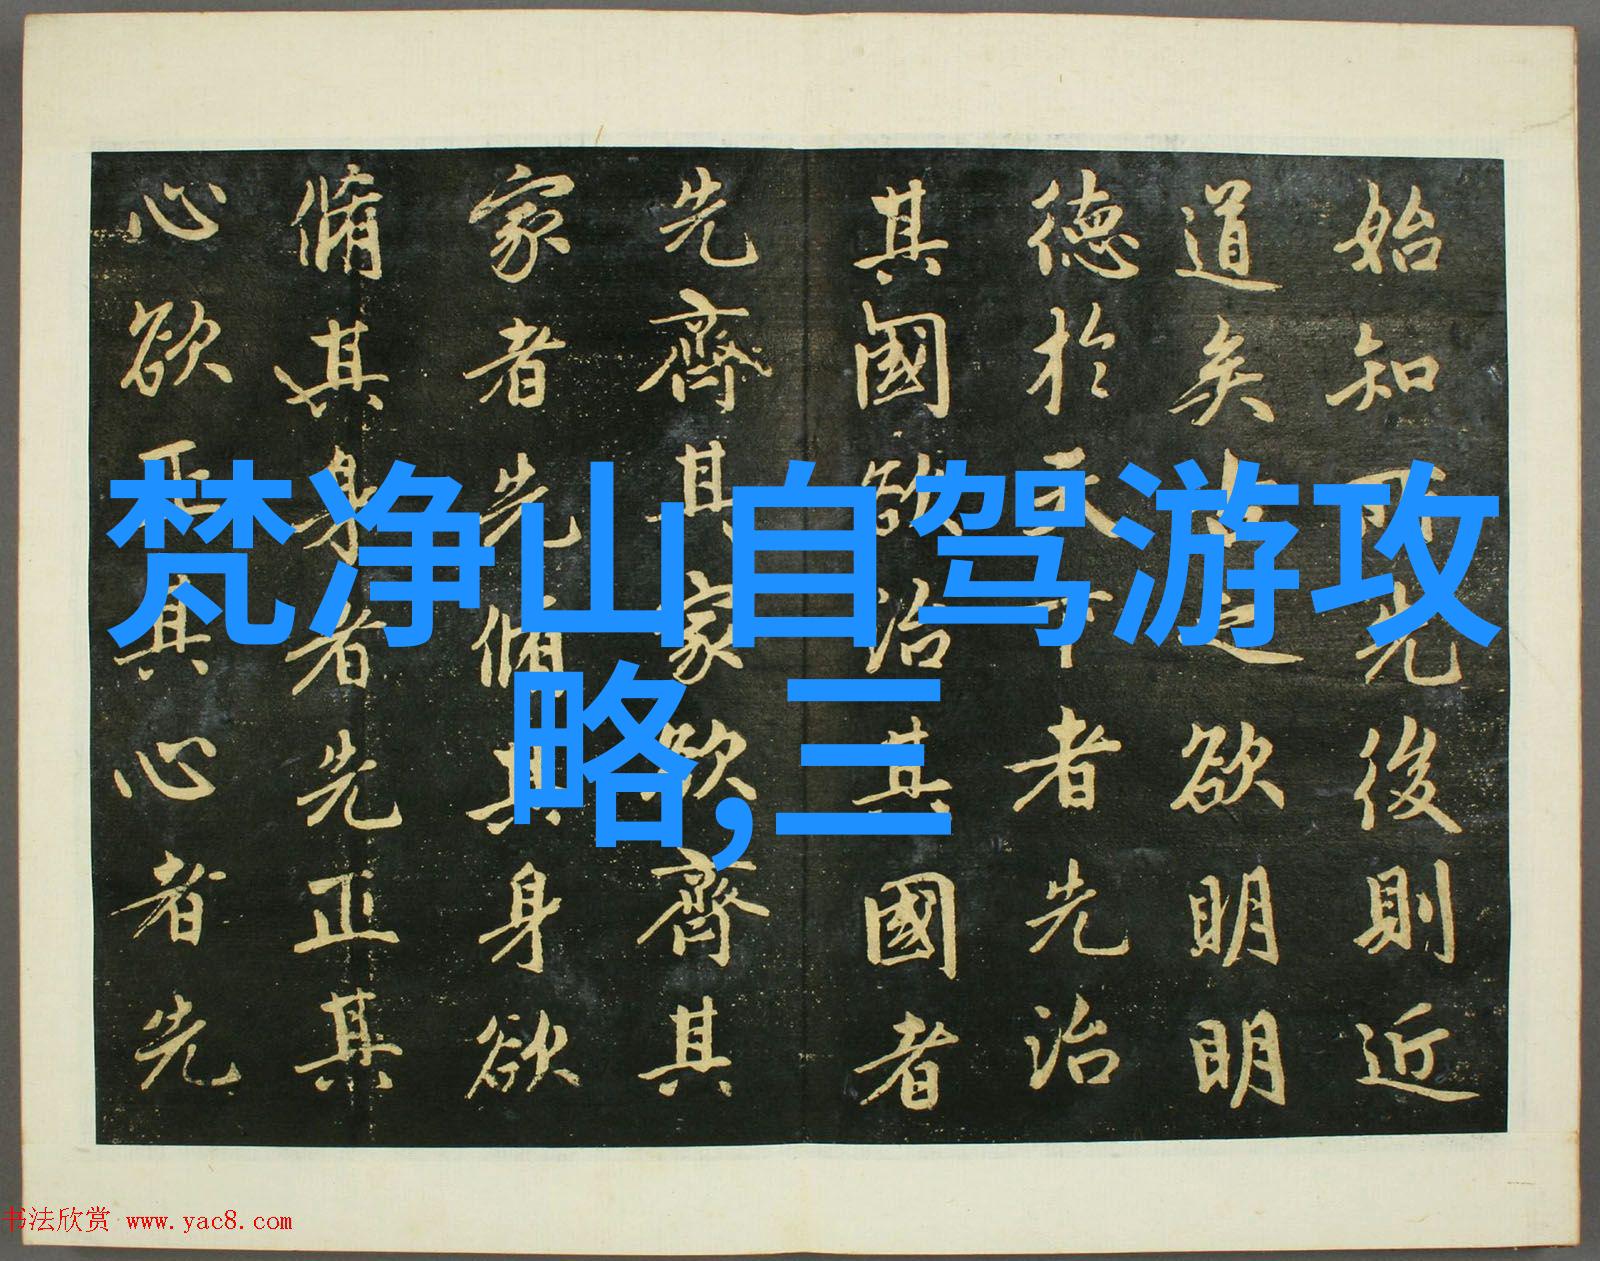 梵净山自驾游攻
略,三
始知所先後則近
道矣古之欲明明
德於天下者先治
其國欲治其國者
先齊其家欲齊其
家者先脩其身欲
脩其身者先正其
心欲正其心者先
书法欣赏 www.yac8.com